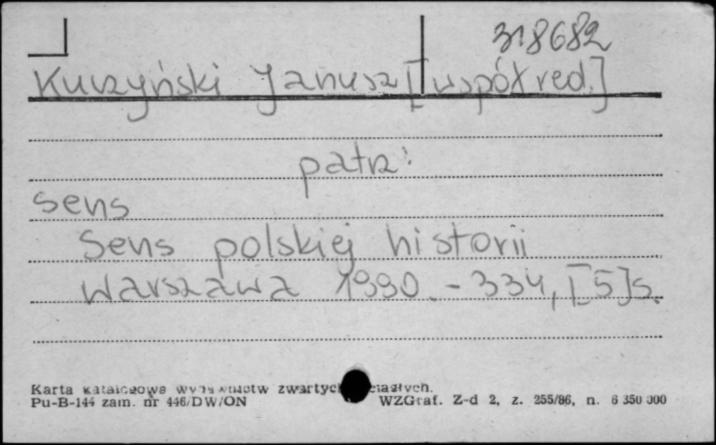 318682
Kuczyński Janusz [współred.]
patrz:
sens
Sens polskiej historii
Warszawa 1990. - 334, [5]s.
Karta katalogowa wydawnictw zwartych i ciągłych.
Pu-B-144 zam. nr 446/DW/ON WZGraf. Z-d 2, z. 255/86, n. 6 350 000